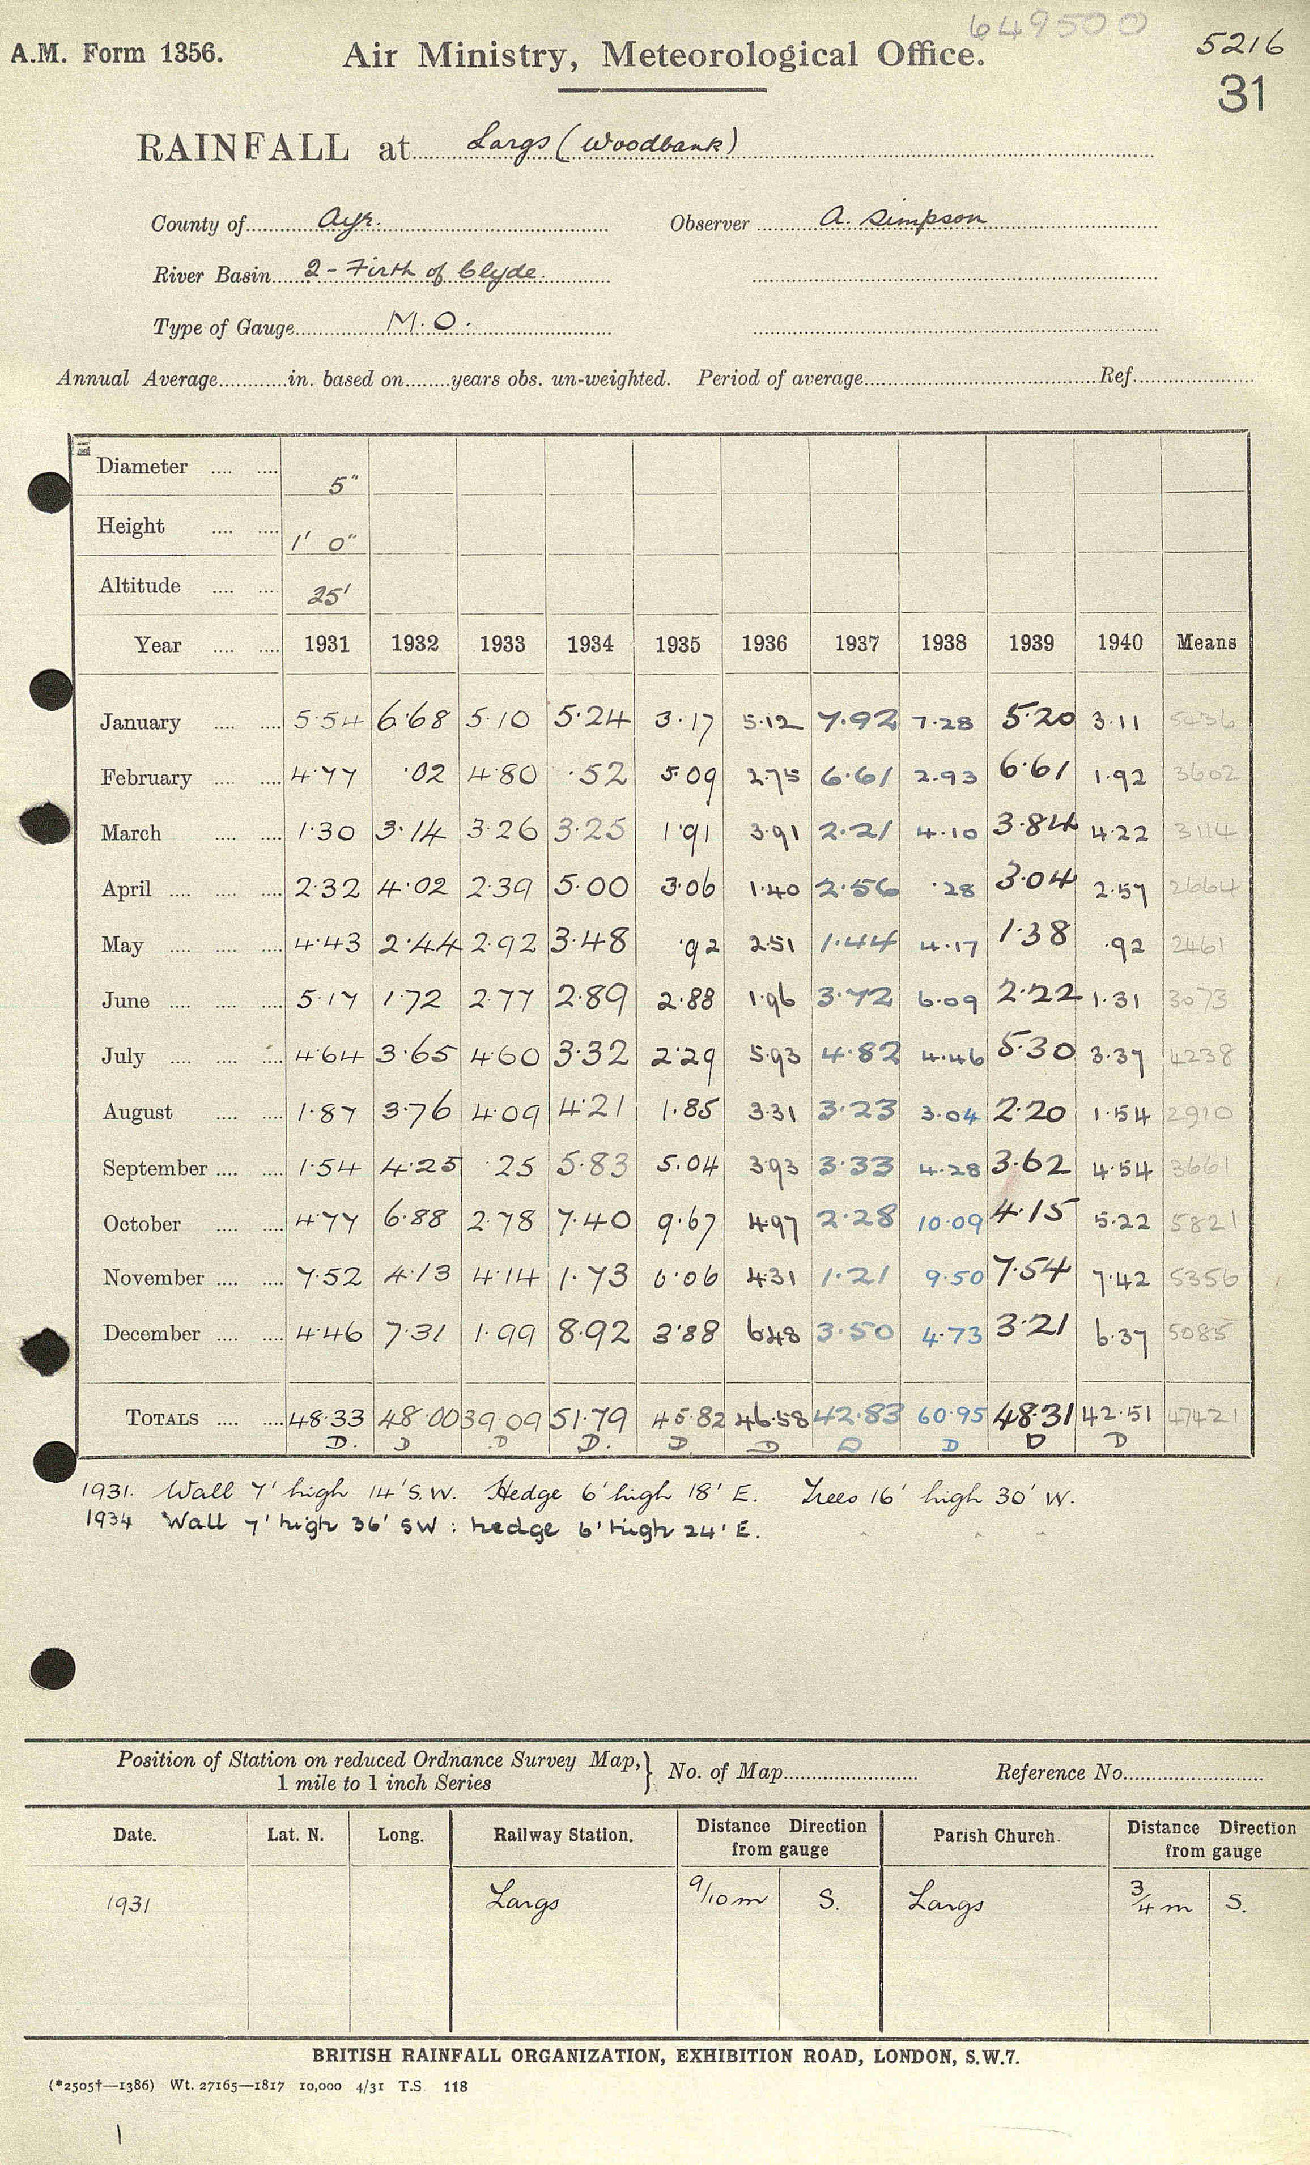 649500
5216
A.M. Form 1356. Air Ministry, Meteorological Office.
31
RAINFALL at Largs (Woodbank)
County of Ayr. Observer A. Simpson
River Basin 2 - Firth of Clyde.
Type of Gauge M.O.
Annual Average in. based on years obs. un-weighted. Period of average Ref.
Diameter 5"
Height 1' 0"
Altitude 25'
Year 1931 1932 1933 1934 1935 1936 1937 1938 1939 1940 Means
January 5.54 6.68 5.10 5.24 3.17 5.12 7.92 7.28 5.20 3.11 5436
February 4.77 .02 4.80 .52 5.09 2.75 6.61 2.93 6.61 1.92 3602
March 1.30 3.14 3.26 3.25 1.91 3.91 2.21 4.10 3.84 4.22 3114
April 2.32 4.02 2.39 5.00 3.06 1.40 2.56 .28 3.04 2.57 2664
May 4.43 2.44 2.92 3.48 .92 2.51 1.44 4.17 1.38 .92 2461
June 5.17 1.72 2.77 2.89 2.88 1.96 3.72 6.09 2.22 1.31 3073
July 4.64 3.65 4.60 3.32 2.29 5.93 4.82 4.46 5.30 3.37 4238
August 1.87 3.76 4.09 4.21 1.85 3.31 3.23 3.04 2.20 1.54 2910
September 1.54 4.25 .25 5.83 5.04 3.93 3.33 4.28 3.62 4.54 3661
October 4.77 6.88 2.78 7.40 9.67 4.97 2.28 10.09 4.15 5.22 5821
November 7.52 4.13 4.14 1.73 6.06 4.31 1.21 9.50 7.54 7.42 5356
December 4.46 7.31 1.99 8.92 3.88 6.48 3.50 4.73 3.21 6.37 5085
TOTALS 48.33 48.00 39.09 51.79 45.82 46.58 42.83 60.95 48.31 42.51 47421
D. D D D. D D D D D D
1931. Wall 7' high 14' S.W. Hedge 6' high 18' E. Trees 16' high 30' W.
1934 Wall 7' high 36' SW : hedge 6' high 24' E.
Position of Station on reduced Ordnance Survey Map,
1 mile to 1 inch Series } No. of Map Reference No.
Date. Lat. N. Long. Railway Station. Distance Direction from gauge Parish Church. Distance Direction from gauge
1931 Largs 9/10 m S. Largs 3/4 m S.
BRITISH RAINFALL ORGANIZATION, EXHIBITION ROAD, LONDON, S.W.7.
(*2505†—1386) Wt. 27165—1817 10,000 4/31 T.S. 118